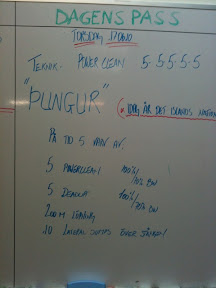 DAGENS PASS
TORSDAG 170610
TEKNIK: POWER CLEAN 5-5-5-5-5
"ÞUNGUR" (IDAG ÄR DET ISLANDS
PÅ TID 5 VARV AV
5 POWERCLEAN 100%/70% BW
5 DEADLIFT 100%/70% BW
200M LÖPNING
10 LATERAL JUMPS ÖVER STÅNG!